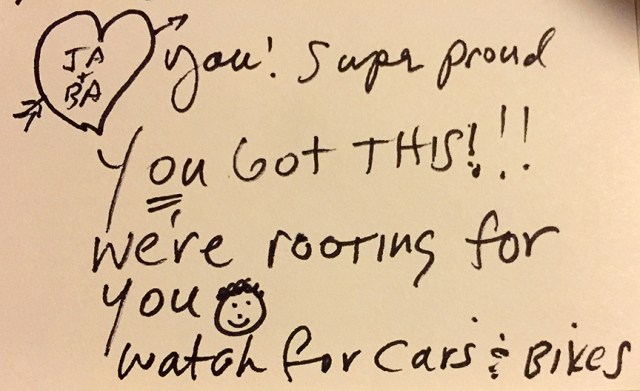 JA
+
BA
you! Super proud
You Got THIS!!!
we're rooting for
you
watch for Cars & Bikes